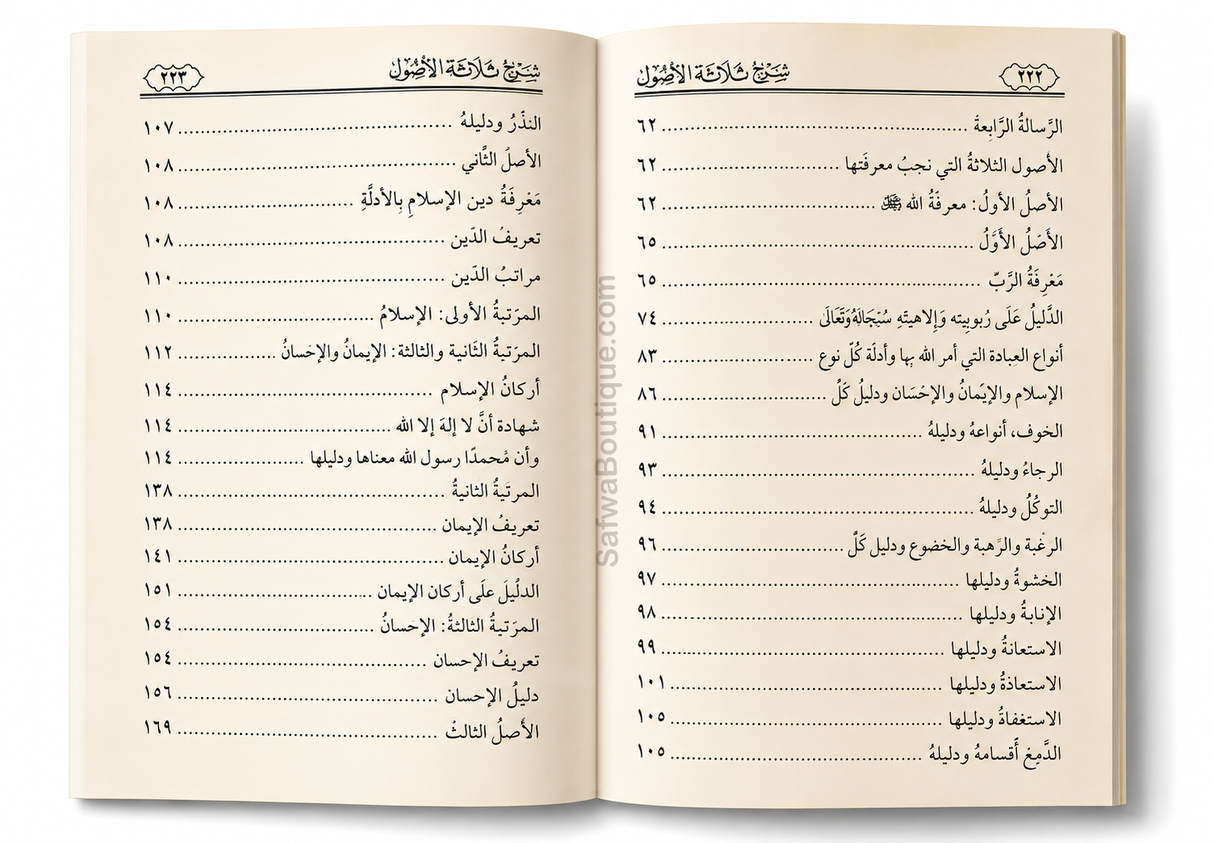 ٢٢٢
شرح ثلاثة الأصول
الرَّسالةُ الرَّابِعةُ ٦٢
الأصول الثلاثةُ التي نجبُ معرفَتها ٦٢
الأصلُ الأولُ: معرفَةُ الله ﷺ ٦٢
الأَصَلُ الأَوَّلُ ٦٥
مَعْرِفَةُ الرَّبّ ٦٥
الدَّليلُ عَلَى رُبوبِيته وَإِلاهيتَّهِ سُبْحَانَهُ وَتَعَالَى ٧٤
أنواع العِبادة التي أمر الله بها وأدلّة كُلّ نوع ٨٣
الإسلام والإيَمانُ والإحْسَان ودليلُ كَلُ ٨٦
الخوف، أنواعهُ ودليلهُ ٩١
الرجاءُ ودليلهُ ٩٣
التوكُلُ ودليلهُ ٩٤
الرغبة والرَّهبة والخضوع ودليل كَلٌ ٩٦
الخشوةُ ودليلها ٩٧
الإنابةُ ودليلها ٩٨
الاستعانةُ ودليلها ٩٩
الاستعاذةُ ودليلها ١٠١
الاستغفاةُ ودليلها ١٠٥
الدَّمِغ أقسامهُ ودليلهُ ١٠٥
شرح ثلاثة الأصول
٢٢٣
النذّرُ ودليلهُ ١٠٧
الأصلُ الثّاني ١٠٨
مَعْرِفَةُ دين الإسلامِ بِالأدلَّةِ ١٠٨
تعريفُ الدّين ١٠٨
مراتبُ الدّين ١١٠
المرَتبةُ الأولى: الإسلامُ ١١٠
المرَتبةُ الثَانية والثالثة: الإيمانُ والإحَسانُ ١١٢
أركانُ الإسلام ١١٤
شهادة أنَّ لا إلهَ إلا الله ١١٤
وأن مُحمدًا رسول الله معناها ودليلها ١١٤
المرتَبةُ الثانيةُ ١٣٨
تعريفُ الإيمان ١٣٨
أركانُ الإيمان ١٤١
الدلُيلَ علَى أركان الإيمان ١٥١
المرَتبةُ الثالثةُ: الإحَسانُ ١٥٤
تعريفُ الإحسان ١٥٤
دليلُ الإحسان ١٥٦
الأَصلُ الثالثُ ١٦٩
SafwaBoutique.com